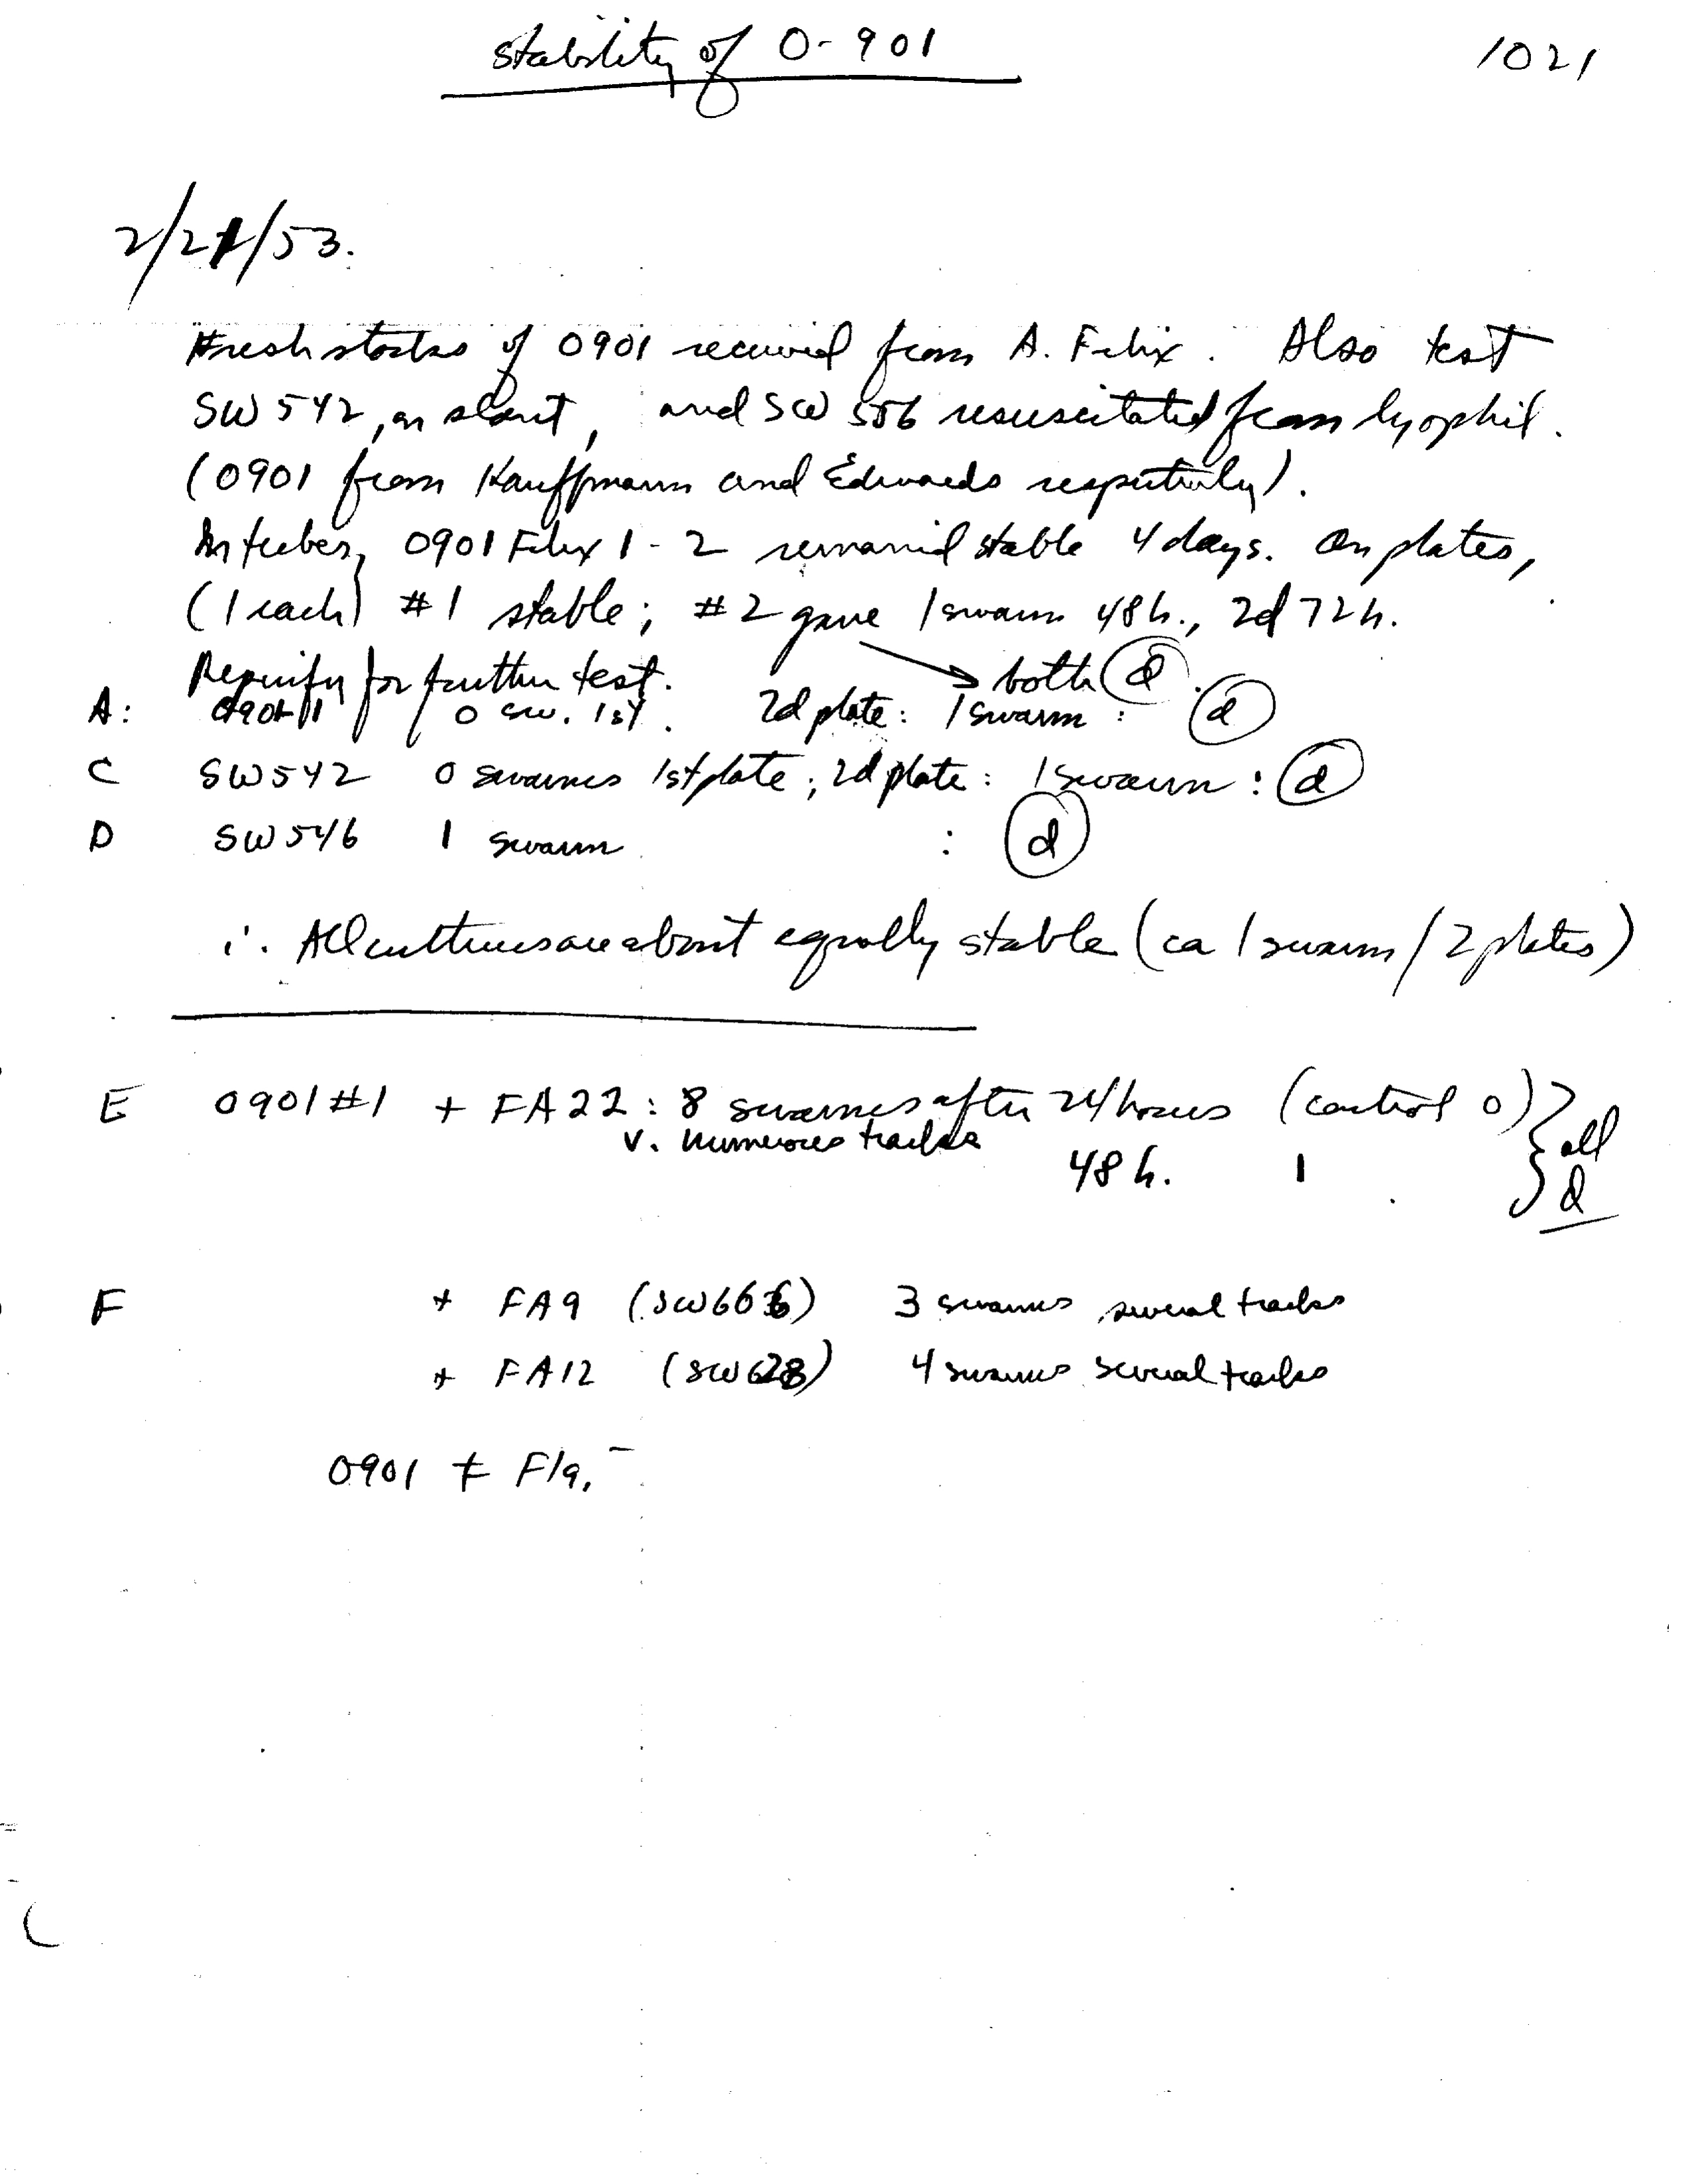 Stability of O-901
1021
2/21/53.
Fresh stocks of O901 received from A. Felix. Also test
SW542, on slant, and SW resuscitated from lyophil.
(O901 from Kauffmann and Edwards respectively).
In tubes, O901 Felix 1-2 remained stable 4 days. On plates,
(1 each) #1 stable; #2 gave 1 swarm 48h., 2d 72h.
both d.
Repurify for further test.
A: O901-1 0 sw. 1st. 2d plate: 1 swarm: d
C SW542 0 swarms 1st plate; 2d plate: 1 swarm: d
D SW546 1 swarm : d
∴ All cultures are about equally stable (ca 1 swarm/2 plates)
E O901#1 + FA22: 8 swarms after 24 hours (control 0) } all
v. numerous trails
48h. 1 d
F + FA9 (SW666) 3 swarms several trails
+ FA12 (SW628) 4 swarms several trails
O901 ≠ Fla.⁻